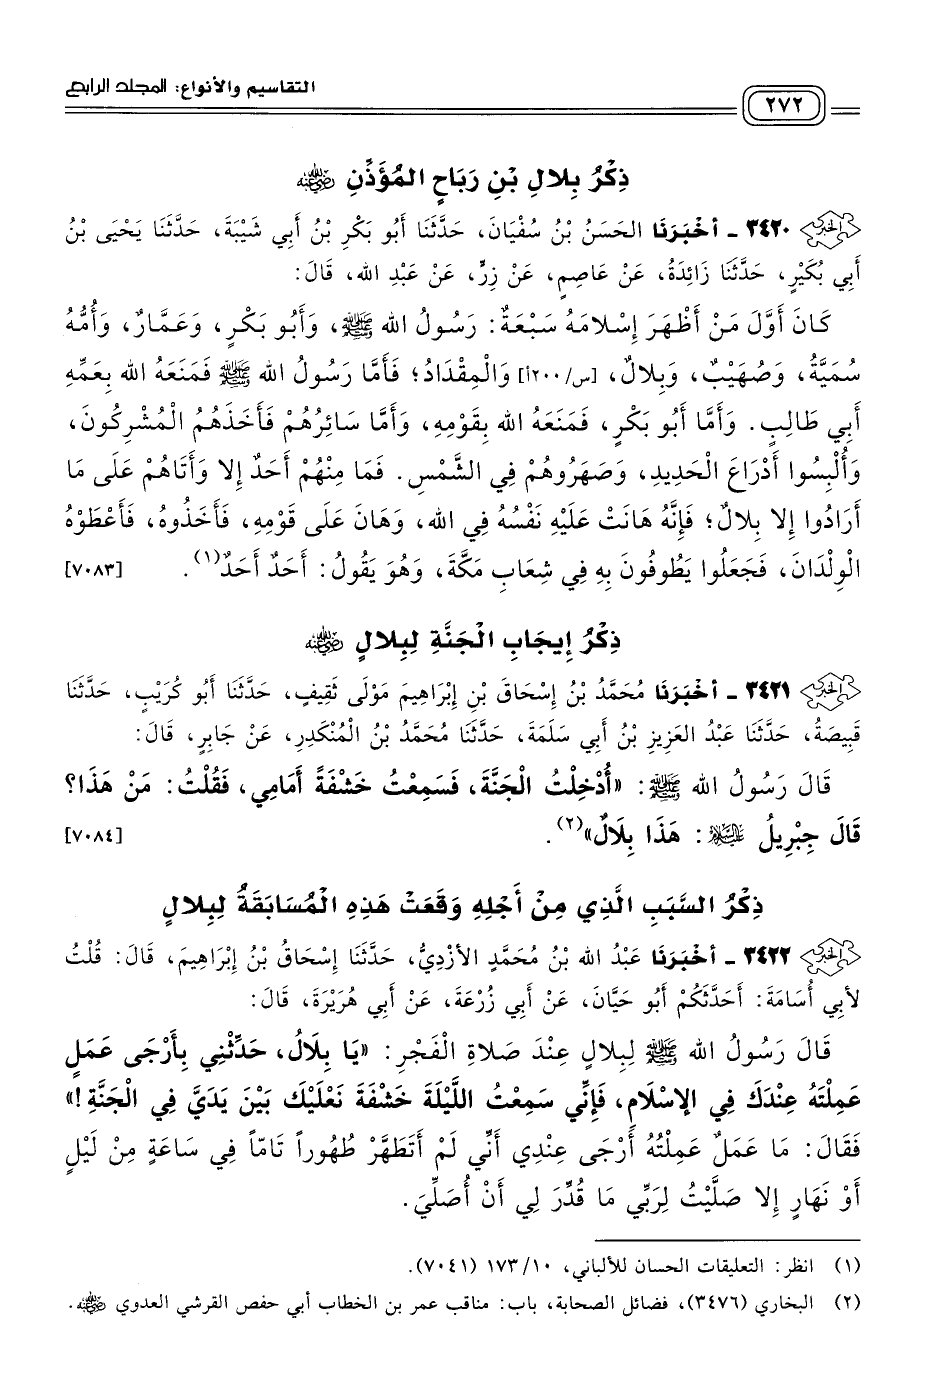 التقاسيم والأنواع: المجلد الرابع
٢٧٢
ذِكْرُ بِلالِ بْنِ رَبَاحٍ المُؤَذِّنِ رضي الله عنه
٣٤٢٠ ـ أخْبَرَنَا الحَسَنُ بْنُ سُفْيَانَ، حَدَّثَنَا أَبُو بَكْرِ بْنُ أَبِي شَيْبَةَ، حَدَّثَنَا يَحْيَى بْنُ
أَبِي بُكَيْرٍ، حَدَّثَنَا زَائِدَةُ، عَنْ عَاصِمٍ، عَنْ زِرٍّ، عَنْ عَبْدِ الله، قَالَ:
كَانَ أَوَّلَ مَنْ أَظْهَرَ إِسْلامَهُ سَبْعَةٌ: رَسُولُ الله ﷺ، وَأَبُو بَكْرٍ، وَعَمَّارٌ، وَأُمُّهُ
سُمَيَّةُ، وَصُهَيْبٌ، وَبِلالٌ، [س/٢٠٠أ] وَالْمِقْدَادُ؛ فَأَمَّا رَسُولُ الله ﷺ فَمَنَعَهُ الله بِعَمِّهِ
أَبِي طَالِبٍ. وَأَمَّا أَبُو بَكْرٍ، فَمَنَعَهُ الله بِقَوْمِهِ، وَأَمَّا سَائِرُهُمْ فَأَخَذَهُمُ الْمُشْرِكُونَ،
وَأُلْبِسُوا أَدْرَاعَ الْحَدِيدِ، وَصَهَرُوهُمْ فِي الشَّمْسِ. فَمَا مِنْهُمْ أَحَدٌ إِلا وَأَتَاهُمْ عَلَى مَا
أَرَادُوا إِلا بِلالٌ؛ فَإِنَّهُ هَانَتْ عَلَيْهِ نَفْسُهُ فِي الله، وَهَانَ عَلَى قَوْمِهِ، فَأَخَذُوهُ، فَأَعْطَوْهُ
الْوِلْدَانَ، فَجَعَلُوا يَطُوفُونَ بِهِ فِي شِعَابِ مَكَّةَ، وَهُوَ يَقُولُ: أَحَدٌ أَحَدٌ(١). [٧٠٨٣]
ذِكْرُ إِيجَابِ الْجَنَّةِ لِبِلالٍ رضي الله عنه
٣٤٢١ ـ أخْبَرَنَا مُحَمَّدُ بْنُ إِسْحَاقَ بْنِ إِبْرَاهِيمَ مَوْلَى ثَقِيفٍ، حَدَّثَنَا أَبُو كُرَيْبٍ، حَدَّثَنَا
قَبِيصَةُ، حَدَّثَنَا عَبْدُ العَزِيزِ بْنُ أَبِي سَلَمَةَ، حَدَّثَنَا مُحَمَّدُ بْنُ الْمُنْكَدِرِ، عَنْ جَابِرٍ، قَالَ:
قَالَ رَسُولُ الله ﷺ: «أُدْخِلْتُ الْجَنَّةَ، فَسَمِعْتُ خَشْفَةً أَمَامِي، فَقُلْتُ: مَنْ هَذَا؟
قَالَ جِبْرِيلُ عليه السلام: هَذَا بِلَالٌ»(٢). [٧٠٨٤]
ذِكْرُ السَّبَبِ الَّذِي مِنْ أَجْلِهِ وَقَعَتْ هَذِهِ الْمُسَابَقَةُ لِبِلالٍ
٣٤٢٢ ـ أخْبَرَنَا عَبْدُ الله بْنُ مُحَمَّدٍ الأَزْدِيُّ، حَدَّثَنَا إِسْحَاقُ بْنُ إِبْرَاهِيمَ، قَالَ: قُلْتُ
لأَبِي أُسَامَةَ: أَحَدَّثَكُمْ أَبُو حَيَّانَ، عَنْ أَبِي زُرْعَةَ، عَنْ أَبِي هُرَيْرَةَ، قَالَ:
قَالَ رَسُولُ الله ﷺ لِبِلالٍ عِنْدَ صَلاةِ الْفَجْرِ: «يَا بِلَالُ، حَدِّثْنِي بِأَرْجَى عَمَلٍ
عَمِلْتَهُ عِنْدَكَ فِي الإسْلَامِ، فَإِنِّي سَمِعْتُ اللَّيْلَةَ خَشْفَةَ نَعْلَيْكَ بَيْنَ يَدَيَّ فِي الْجَنَّةِ!»
فَقَالَ: مَا عَمَلٌ عَمِلْتُهُ أَرْجَى عِنْدِي أَنِّي لَمْ أَتَطَهَّرْ طُهُوراً تَامّاً فِي سَاعَةٍ مِنْ لَيْلٍ
أَوْ نَهَارٍ إِلا صَلَّيْتُ لِرَبِّي مَا قُدِّرَ لِي أَنْ أُصَلِّيَ.
(١) انظر: التعليقات الحسان للألباني، ١٠/ ١٧٣ (٧٠٤١).
(٢) البخاري (٣٤٧٦)، فضائل الصحابة، باب: مناقب عمر بن الخطاب أبي حفص القرشي العدوي رضي الله عنه.